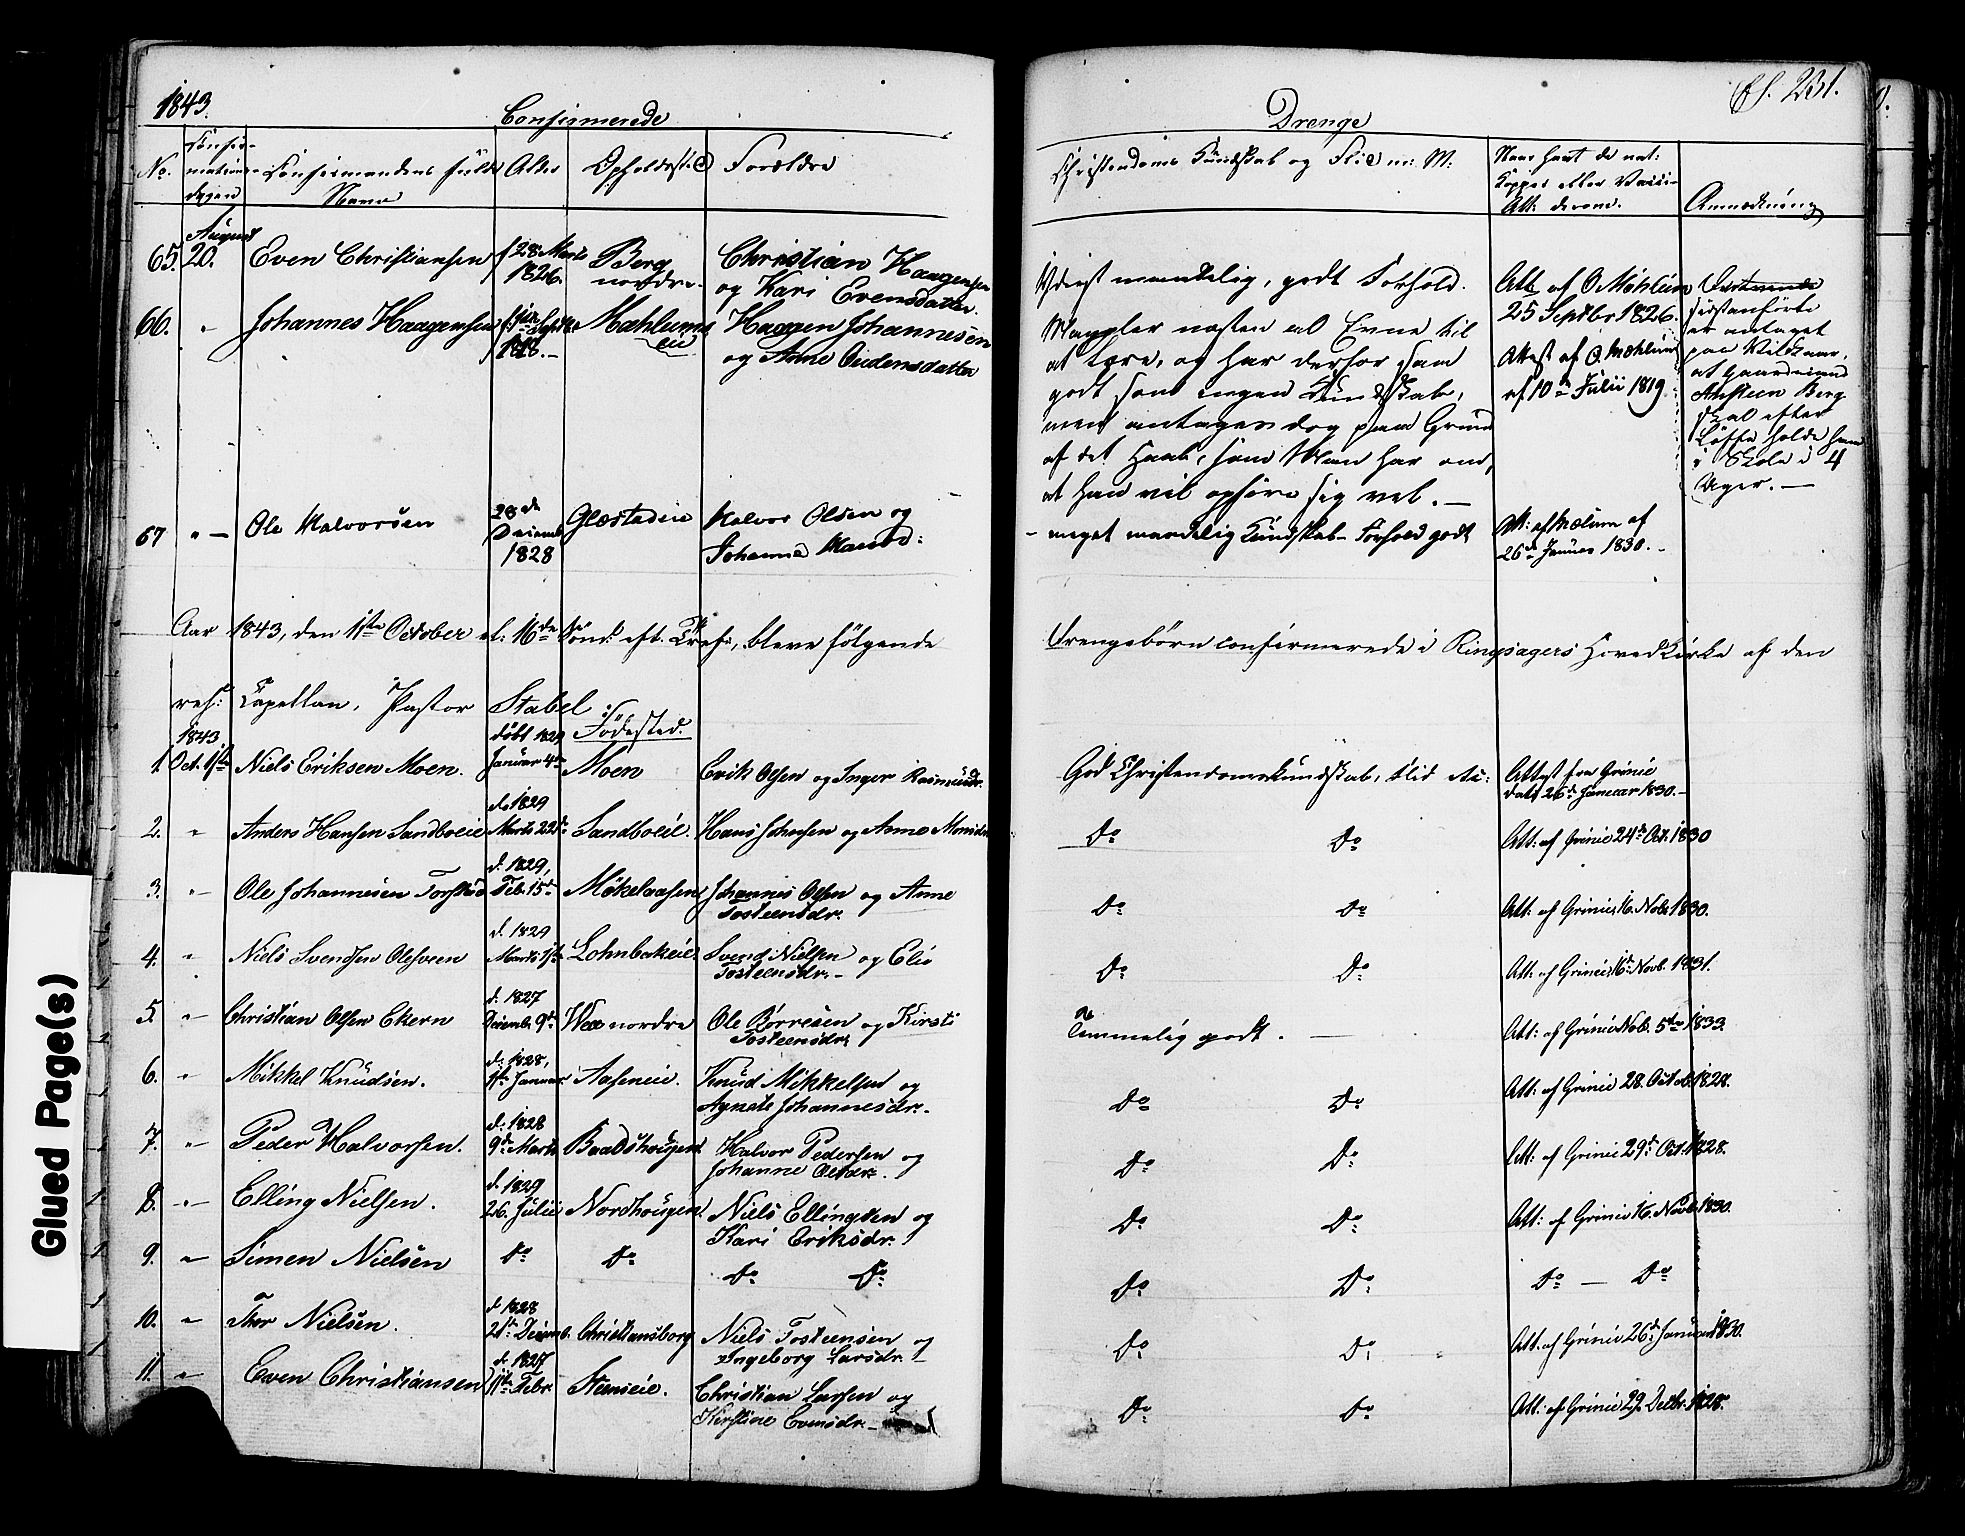 1843.
Confirmerede
No.
Confir-
mations-
dagen
Confirmandens fulde
Navn
Alder
Opholdssted
Forældre
65.
August
20.
Even Christiansen
f 28 Marts
1826.
Berg
nordre
Christian Haagensen
og Kari Evensdatter.
66.
"
Johannes Haagensen
Mæhlums
eie
Haagen Johannesen
og Anne Oudensdatter
67
" —
Ole Halvorsen
28de
Decemb
1828
Glæstadeie
Halvor Olsen og
Johanne
Aar 1843, den 1ste October el. 16de Sønd. eft. Tref:, bleve følgende
res: Capellan, Pastor Stabel
1843
døbt 1829
Fødested.
1. Oct. 1ste Niels Eriksen Moen. Januar 4de Moen Erik Olsen og Inger Rasmusdr.
d. 1829
2. " Anders Hansen Sandboeie Marts 22de Sandboeie. Hans Johnsen og Anne Monsdr
d. 1829,
3. "- Ole Johannesen Torstad Feb. 15de Mökelaasen Johannes Olsen og Anne
Tosteensdr.
d. 1829
4. " Niels Svendsen Olesveen Marts 1ste Lohnbakeie Svend Nielsen og Elie
Tosteensdr. -
d. 1827
5. "- Christian Olsen Ekern Decemb. 9de Wee nordre Ole Börresen og Kirsti
Tosteensdr.
d. 1828,
6. " Mikkel Knudsen. 1ste Januar Aaseneie. Knud Mikkelsen og
Agnete Johannesdr. -
d. 1828
7. " Peder Halvorsen. 9de Marts Baadshougen Halvor Pedersen og
Johanne Olsdr. .
d. 1829
8. " Elling Nielsen. 26. Julii Nordhougen Niels Ellingsen og
Kari Eriksdr.
9. " Simen Nielsen Do Do
Do Do
d. 1828
10. " Thor Nielsen. 21de Decemb. Christiansborg Niels Tosteensen og
Ingeborg Larsdr.
d. 1827
11. " Even Christiansen 11te Febr. Steneeie. Christian Larsen og
Kirstine Evensdr. -
Glued Page(s)
Drenge
Christendoms Kundskab og Flid m: M:
Naar havt de nat:
Kopper eller Vacci-
Att. derom.
Anmærkning
Yderst maadelig, godt Forhold.
Att af O Mæhlum
25 Septbr 1826.
Mangler næsten al Evne til
at lære, og har derfor saa
godt som ingen Kundskab,
men antages dog paa Grund
af det Haab, som Man har om,
at han vil opføre sig vel. —
Attest af O. Mæhlum
af 10de Julii 1819.
sidstanførte
er antaget
paa Vilkaar,
at Gaardmand
Berg
skal efter
Løfte holde ham
i Skole i 4
Uger. —
- meget maadelig Kundskab - Forhold godt
Att: af Mælum af
26de Januar 1830. -
Drengebørn confirmerede i Ringsagers Hovedkirke af den
God Christendomskundskab, Flid
Attest fra Grinie
dat. 26de Januar 1830. -
Do Do Att: af Grinie 24de Oct. 1830
Do Do Att: af Grinie 16. Novb 1830.
Do Do Att: af Grinie 16de Novb. 1831.
Temmelig godt. — Att: af Grinie Nob. 5te 1833.
Do Do Att: af Grinie 28. Octob. 1828.
Do Do Att: af Grinie 29de Oct. 1828.
Do Do Att: af Grinie 16. Novb. 1830.
Do Do Do — Do
Do Do Att: af Grinie 26de Januar 1830.
Do Do Att: af Grinie 29. Decbr. 1828.